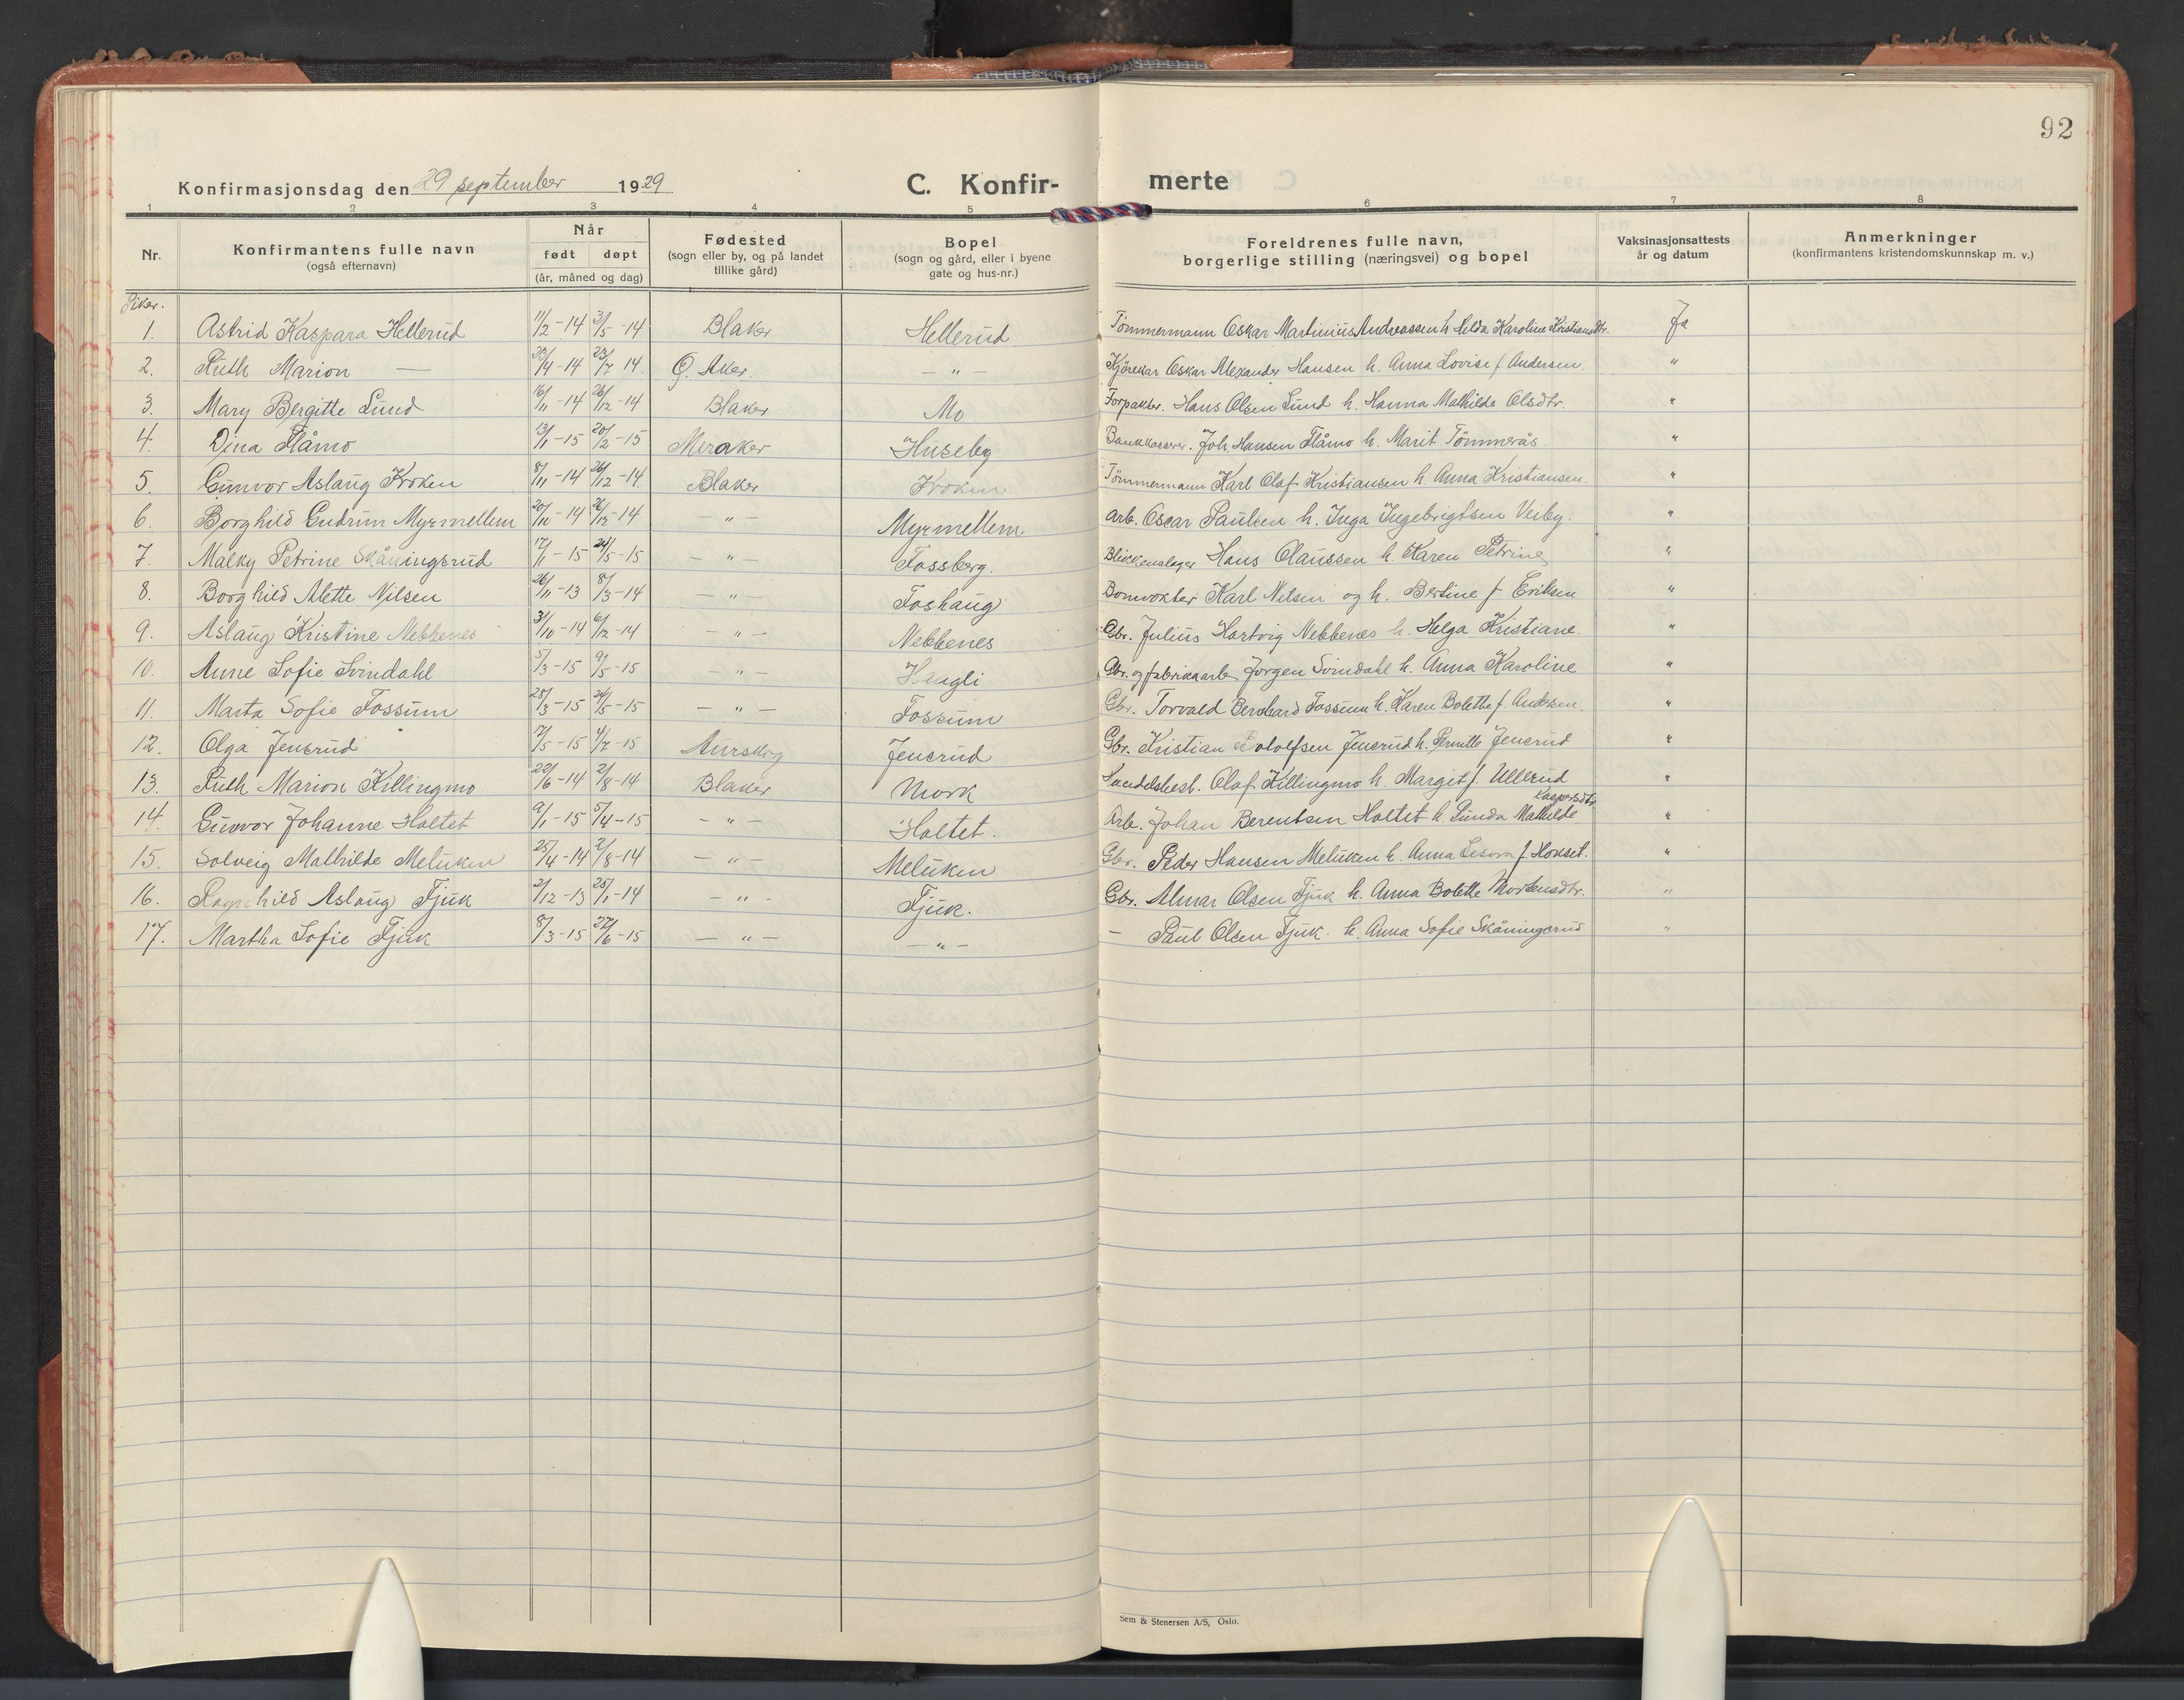 92
Konfirmasjonsdag den 29 september 1929 C. Konfir- merte
1 2 3 4 5 6 7 8
Nr. Konfirmantens fulle navn (også efternavn) Når født døpt (år, måned og dag) Fødested (sogn eller by, og på landet tillike gård) Bopel (sogn og gård, eller i byene gate og hus-nr.) Foreldrenes fulle navn, borgerlige stilling (næringsvei) og bopel Vaksinasjonsattests år og datum Anmerkninger (konfirmantens kristendomskunnskap m. v.)
Piker.
1. Astrid Kaspara Hellerud 11/2-14 3/5-14 Blaker Hellerud Tömmermann Oskar Martinius Andreassen h. Hilda Karoline Kristiansdtr. Ja
2. Ruth Marion — 23/4-14 23/7 14 Ø. Aker. — " — Kjørekar Oskar Alexander Hansen h. Anna Lovise f. Andersen. "
3. Mary Bergitte Lund 16/11-14 26/12-14 Blaker Mo Forpakter. Hans Olsen Lund h. Hanna Mathilde Olsdtr. "
4. Dina Flåmo 13/1-15 20/2-15 Meraker Huseby Bankkasserer. Joh. Hansen Flåmo h. Marit Tömmerås. "
5. Gunvor Aslaug Kroken 8/11-14 26/12-14 Blaker Kroken Tömmermann Karl Olaf Kristiansen h. Anna Kristiansen. "
6. Borghild Gudrun Myrmellem 20/10-14 26/12-14 — " — Myrmellem Arb. Oscar Paulsen h. Inga Ingebrigtsen Veiby. "
7. Malky Petrine Skåningsrud 17/1-15 24/5-15 — " — Fossberg. Blikkenslager Hans Olaussen h. Karen Petrine "
8. Borghild Alette Nilsen 26/11-13 8/3-14 — " — Foshaug Bomvokter Karl Nilsen og h. Bertine f. Eriksen "
9. Aslaug Kristine Nebbenes 31/10-14 6/12-14 — " — Nebbenes Gbr. Julius Hartvig Nebbenes h. Helga Kristiane. "
10. Anne Sofie Svindahl 5/3-15 9/5-15 — " — Haugli Gbr. og fabrikkarb. Jørgen Svindahl h. Anna Karoline "
11. Marta Sofie Fossum 28/3-15 24/5-15 — " — Fossum Gbr. Torvald Bernhard Fossum h. Karen Bolette f. Andersen. "
12. Olga Jensrud 12/5-15 4/7-15 Aurskog Jensrud Gbr. Kristian Jensrud h. Pernille Jensrud "
13. Ruth Marion Killingmo 22/6-14 2/8-14 Blaker Mork Handelsbest. Olaf Killingmo h. Margit f. Ullerud "
14. Gunvor Johanne Holtet 9/1-15 5/4-15 — " — Holtet. Arb. Johan Berentsen Holtet h. Gunda Mathilde Kaspersdtr. "
15. Solveig Mathilde Melüken 25/4-14 2/8-14 — " — Melüken Gbr. Peder Hansen Melüken h. Anna f. Hokset. "
16. Ragnhild Aslaug Fjuk 2/12-13 25/1-14 — " — Fjuk. Gbr. Almar Olsen Fjuk h. Anna Bolette Mortensdtr. "
17. Martha Sofie Fjuk 8/3-15 27/6-15 — " — — " — — Paul Olsen Fjuk. h. Anna Sofie Skåningsrud "
Sem & Stenersen A/S, Oslo.